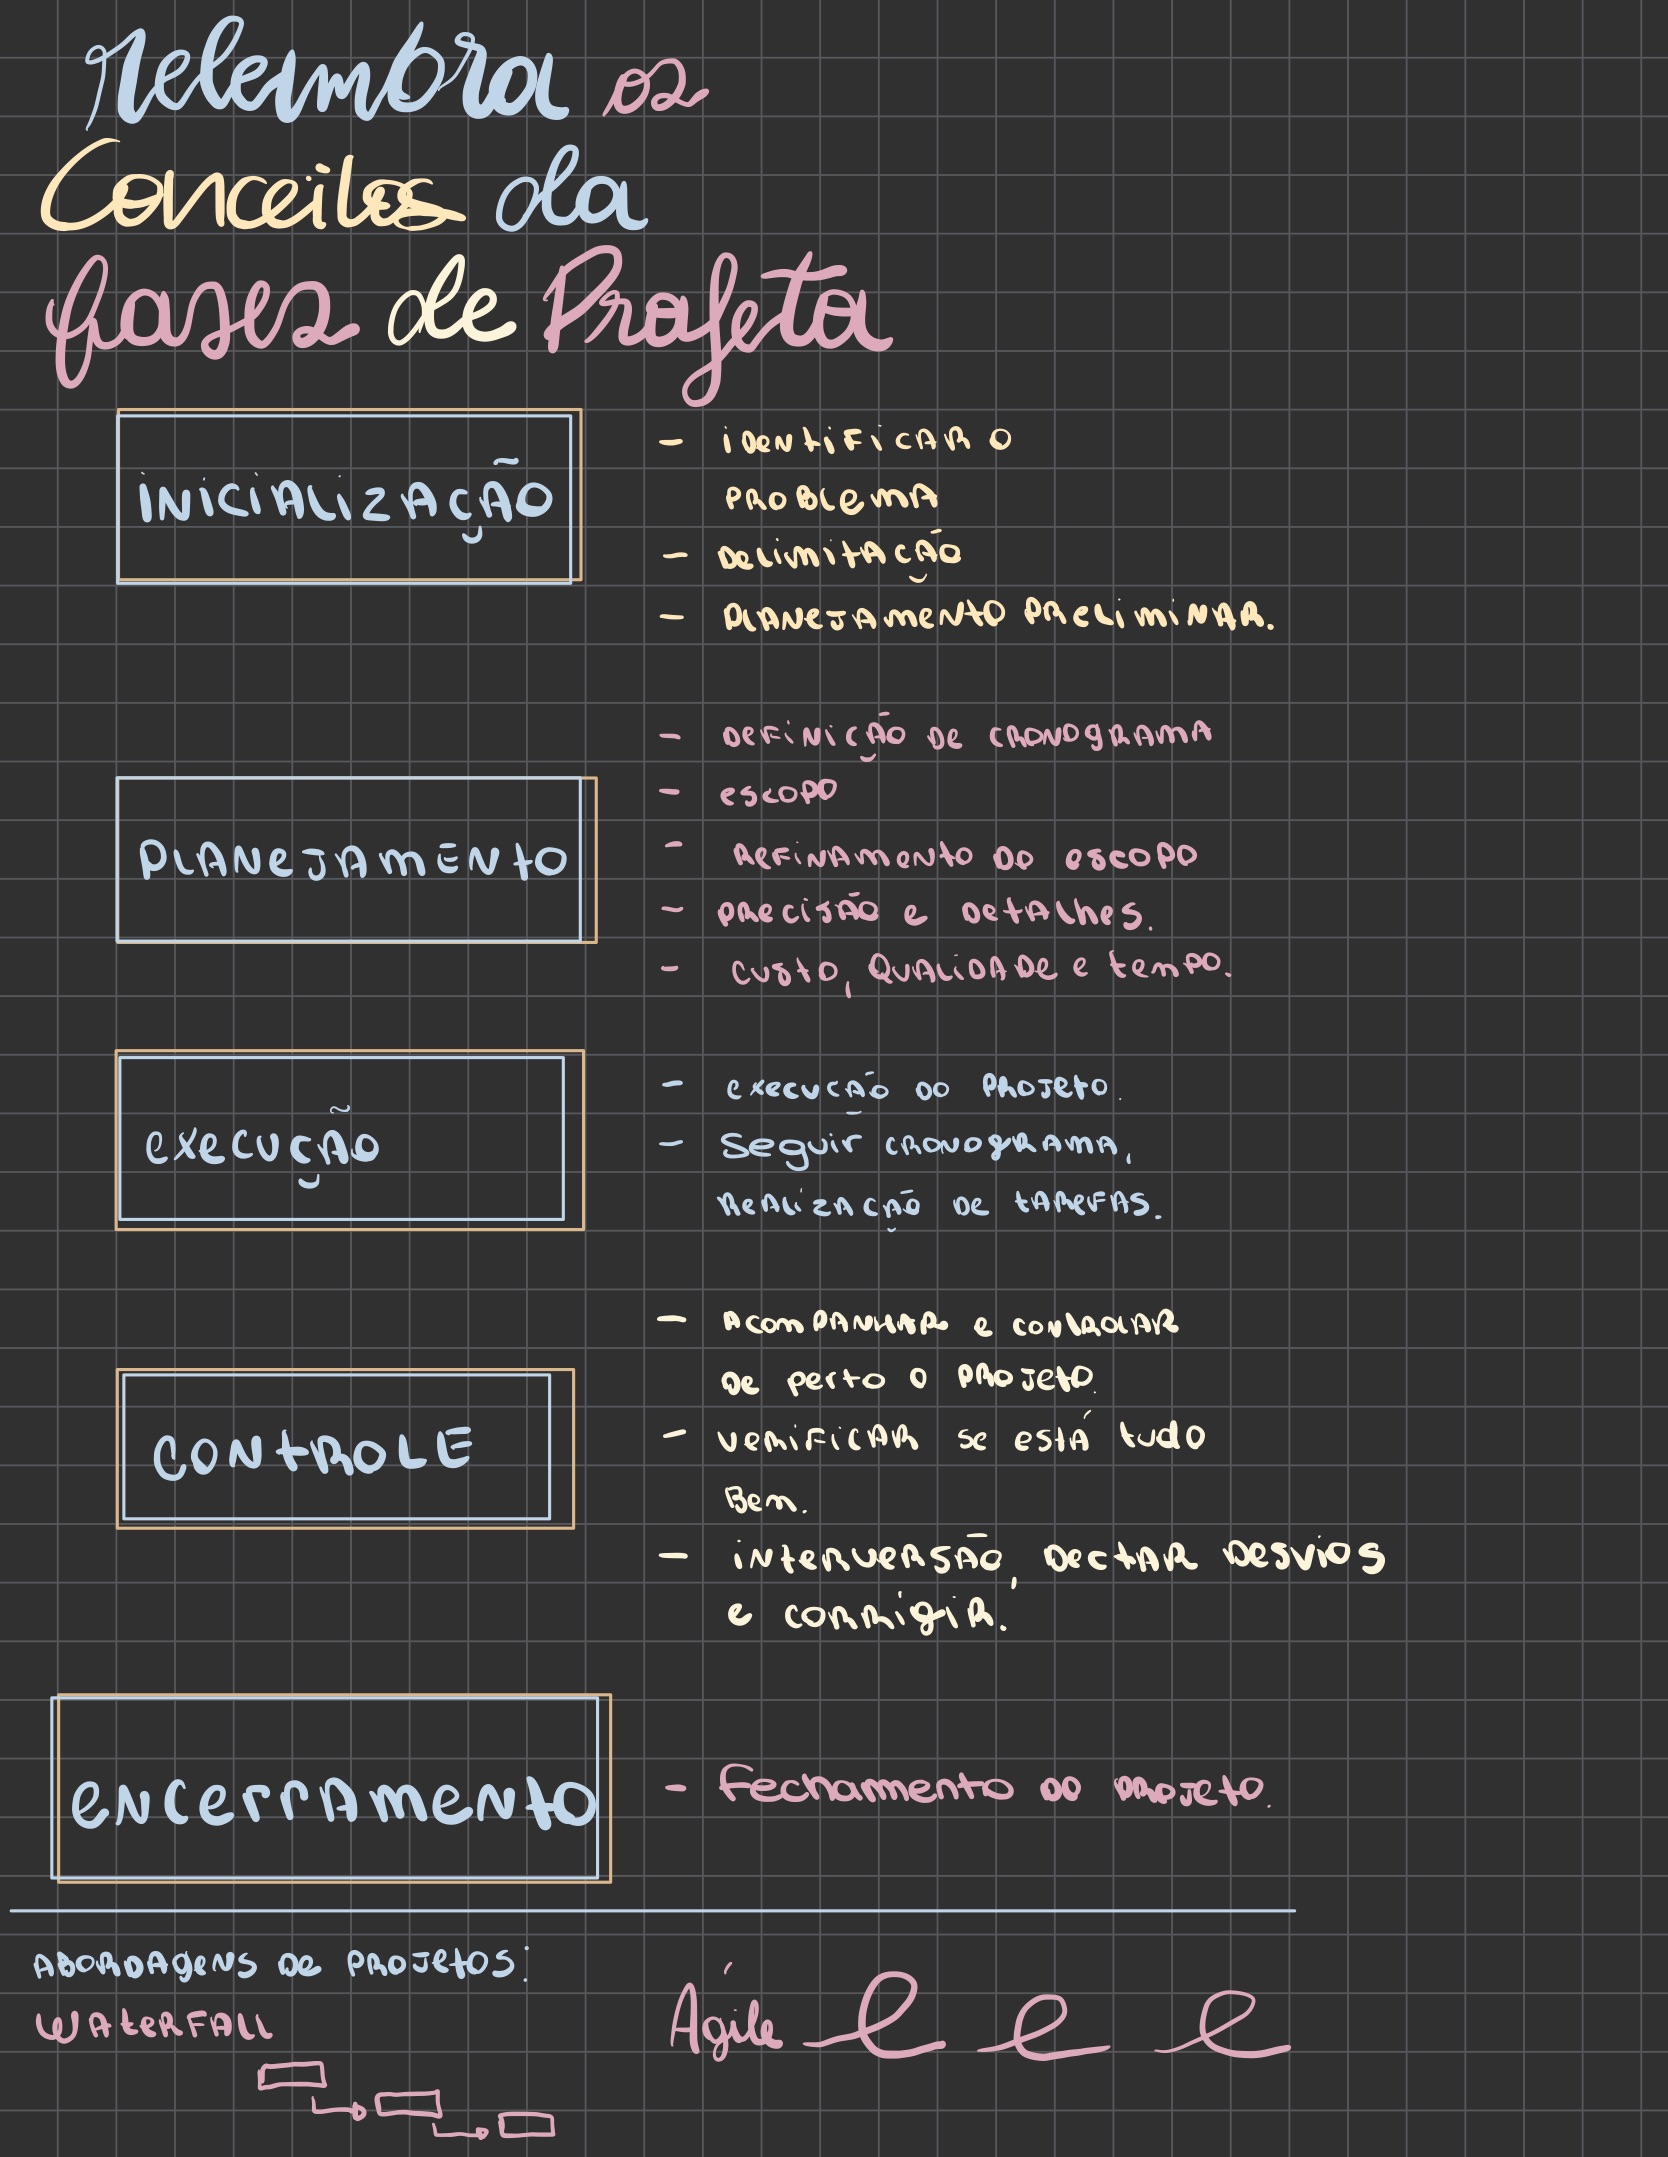 Relembra os
Conceitos da
fases de Projeto
INICIALIZAÇÃO
- IDENTIFICAR O
PROBLEMA
- DELIMITAÇÃO
- PLANEJAMENTO PRELIMINAR.
PLANEJAMENTO
- DEFINIÇÃO DE CRONOGRAMA
- ESCOPO
- REFINAMENTO DO ESCOPO
- PRECISÃO E DETALHES.
- CUSTO, QUALIDADE E TEMPO.
EXECUÇÃO
- EXECUÇÃO DO PROJETO.
- Seguir CRONOGRAMA,
REALIZAÇÃO DE TAREFAS.
CONTROLE
- ACOMPANHAR e CONTROLAR
De perto o PROJETO.
- VERIFICAR se está tudo
Bem.
- INTERVERSÃO, DECTAR DESVIOS
e corrigir.
encerramento
- Fechamento DO PROJETO.
ABORDAGENS DE PROJETOS:
WATERFALL
Ágile